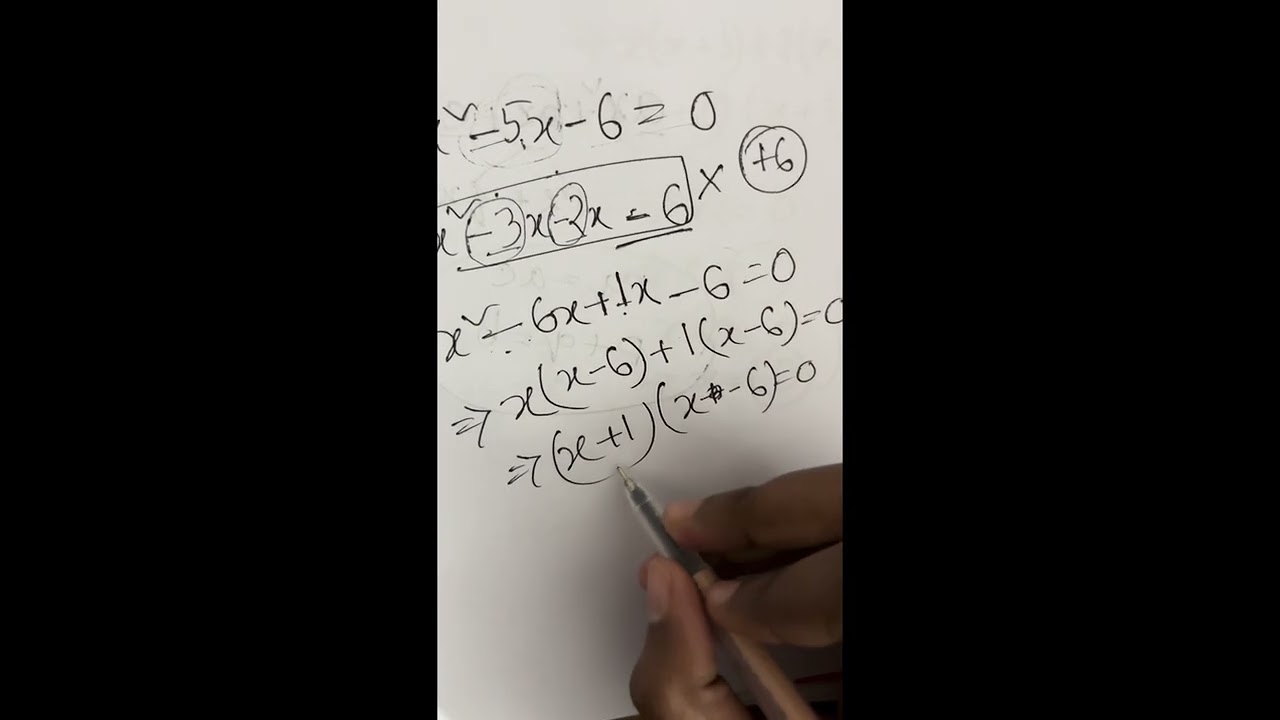 x² - 5x - 6 = 0
x² - 3x - 2x - 6 × +6
x² - 6x + 1x - 6 = 0
⇒ x(x - 6) + 1(x - 6) = 0
⇒ (x + 1)(x - 6) = 0